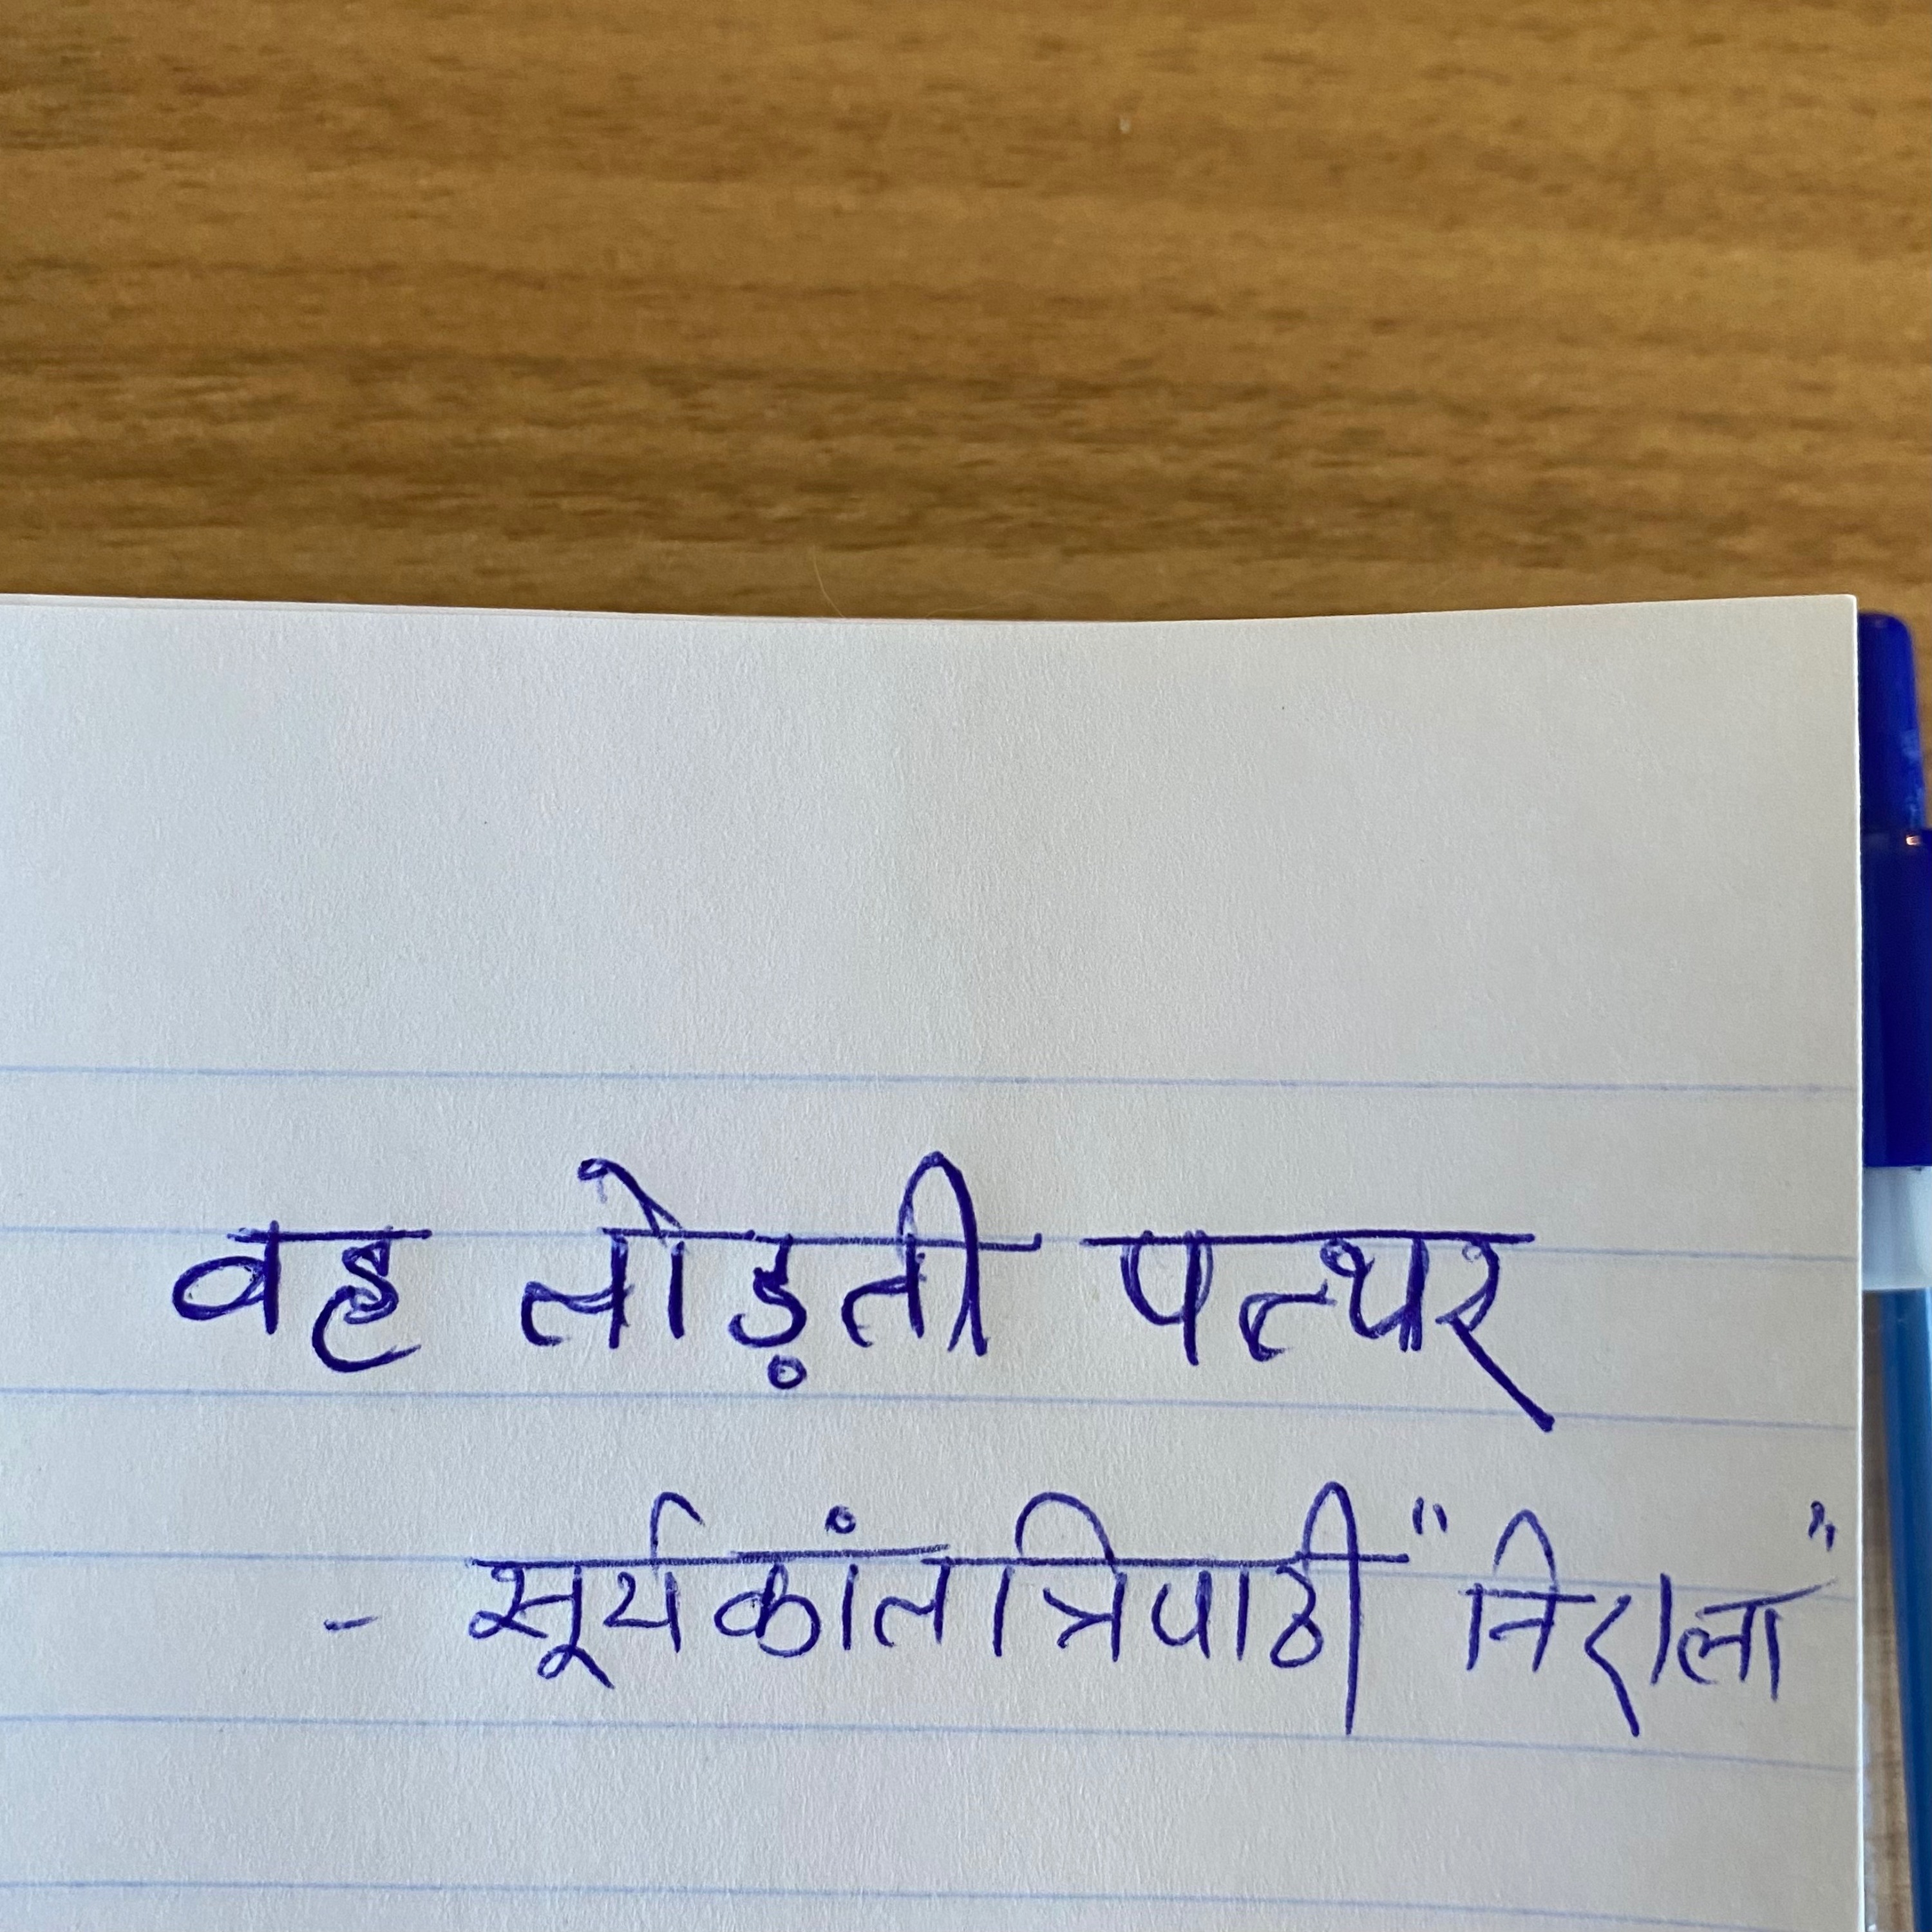 वह तोड़ती पत्थर
- सूर्यकांत त्रिपाठी "निराला"